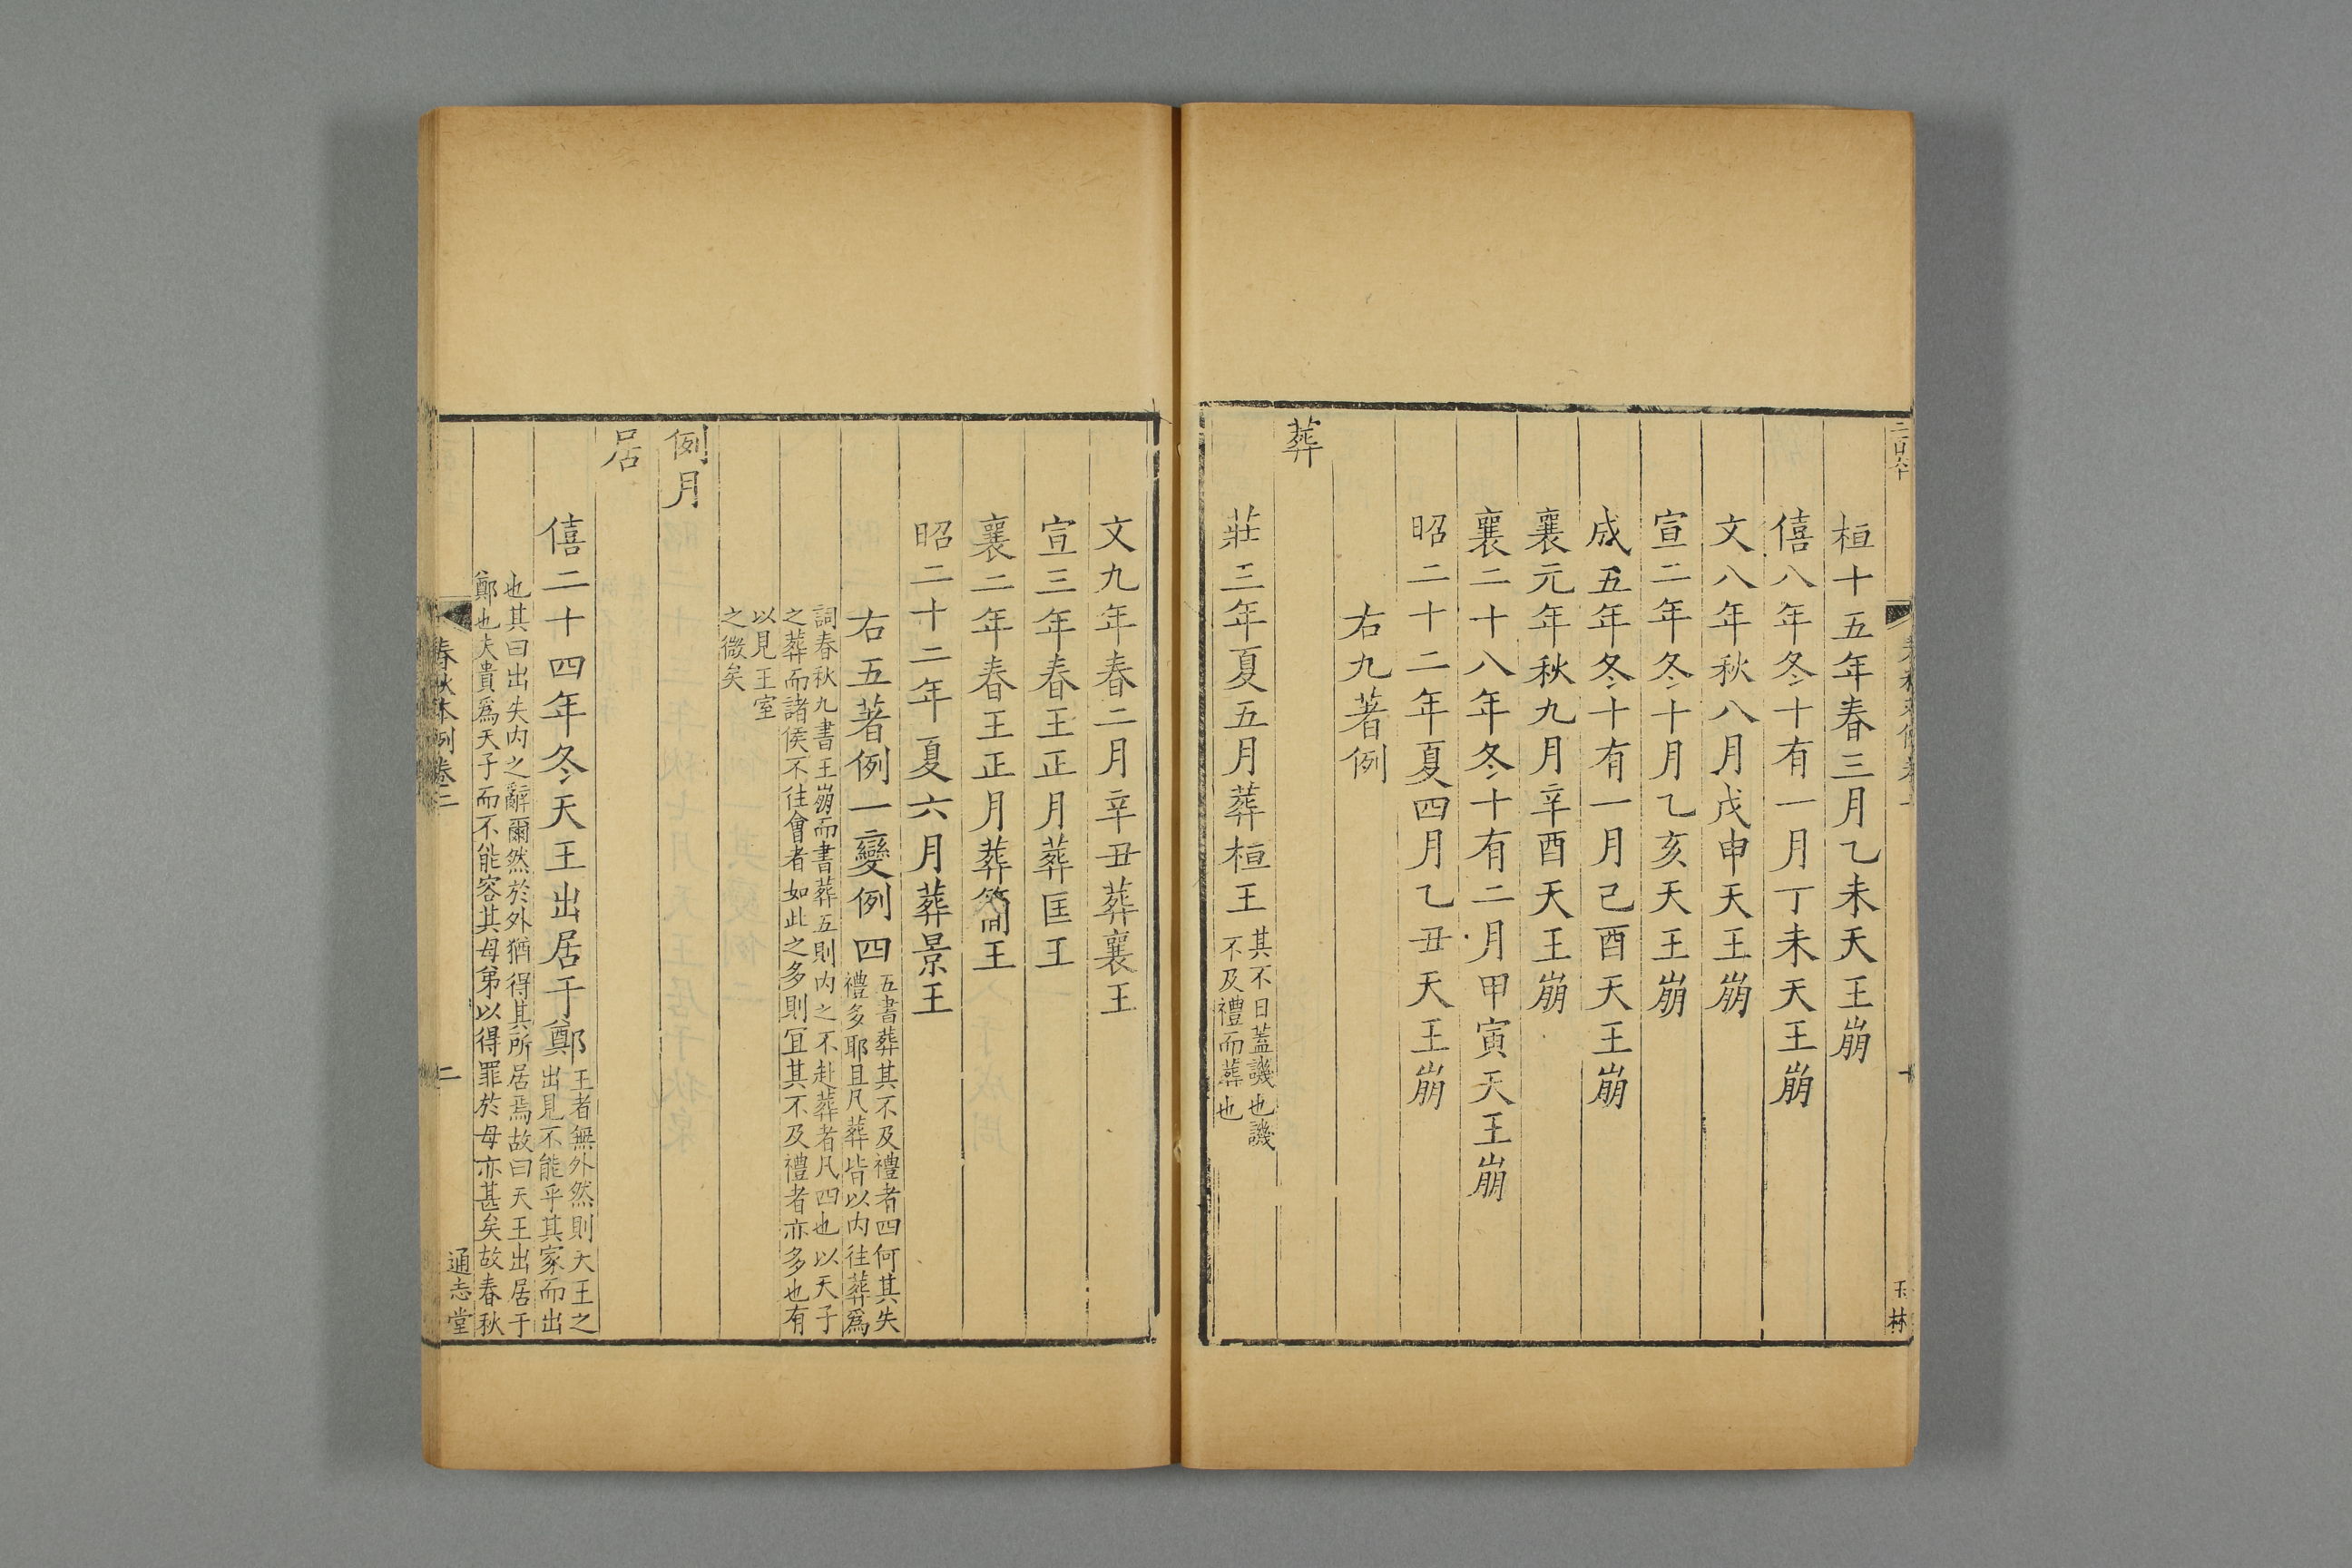 桓十五年春三月乙未天王崩
僖八年冬十有一月丁未天王崩
文八年秋八月戊申天王崩
宣二年冬十月乙亥天王崩
成五年冬十有一月己酉天王崩
襄元年秋九月辛酉天王崩
襄二十八年冬十有二月甲寅天王崩
昭二十二年夏四月乙丑天王崩
右九著例
葬
莊三年夏五月葬桓王
其不日蓋譏也譏
不及禮而葬也
文九年春二月辛丑葬襄王
宣三年春王正月葬匡王
襄二年春王正月葬簡王
昭二十二年夏六月葬景王
右五著例一變例四
五書葬其不及禮者四何其失
禮多耶且凡葬皆以內往葬爲
詞春秋九書王崩而書葬五則內之不赴葬者凡四也以天子
之葬而諸侯不往會者如此之多則宜其不及禮者亦多也有
以見王室
之微矣
例月
居
僖二十四年冬天王出居于鄭
王者無外然則天王之
出見不能乎其家而出
也其曰出失內之辭爾然於外猶得其所居焉故曰天王出居于
鄭也夫貴爲天子而不能容其母弟以得罪於母亦甚矣故春秋
春秋本例卷二
二
通志堂